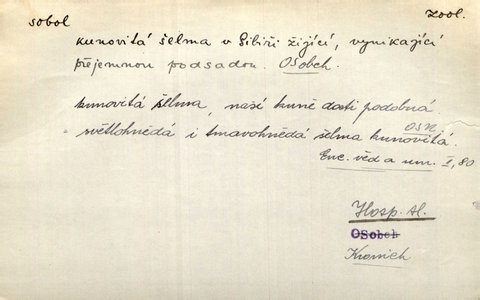 sobol
Zool.
kunovitá šelma v Sibiři žijící, vynikající
přejemnou podsadou. OSobch.
kunovitá šelma, naší kuně dosti podobná
OSN.
světlohnědá i tmavohnědá šelma kunovitá.
Enc. věd a um. I, 80
Hosp. sl.
OSobch